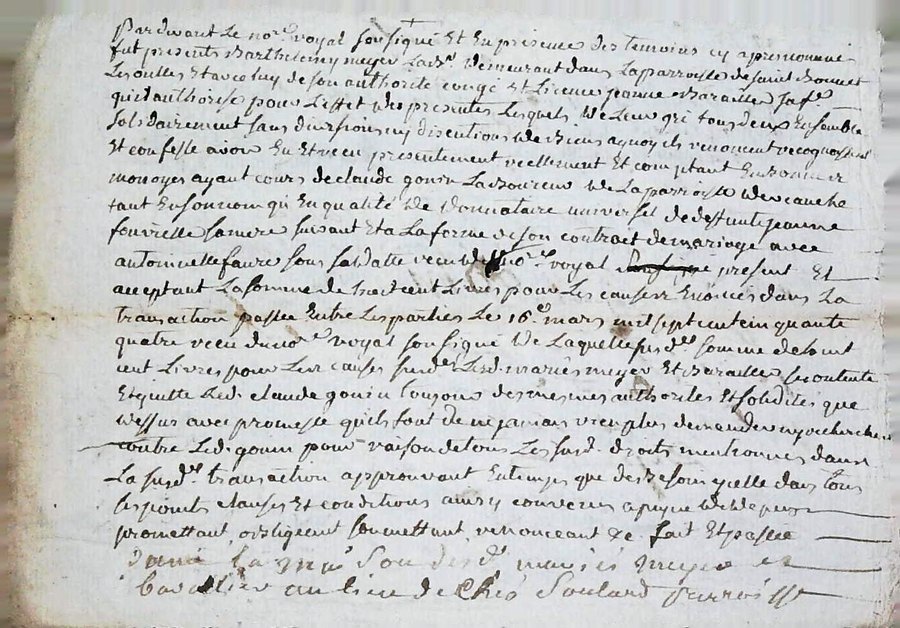 Pardevant Le no.re royal soussigné Et En présence des temoins cy apres nommés
fut présents Barthelemy meyer Lab.r demeurant dans La parroisse de saint Bonnet
Les oulles Et avec luy de son authorité congé Et Licence jeanne Barailler sa f.e
qu'il authorise pour L'effet des presentes Lesquels de Leur gré tous deux Ensemble
solidairement sans division ny discution de Biens a quoy ils renoncent
Et confesse avoir Eu Et receu presentement reellement Et comptant En Bonnes
monoyes ayant cours de claude gonin Laboureur de La parroisse de veauche
tant En son nom qu'En qualité de donnataire universel de deffunte jeanne
fourielle sa mere suivant Et a La forme de son contract de mariage avec
antoinette faure sous sa datte receu de no.re royal soussigné présent Et
acceptant La somme de huit cent Livres pour Les causes Enoncés dans La
transaction passée Entre Les parties Le 16.e mars mil sept cent cinquante
quatre receu du no.re royal soussigné De Laquelle susd.e somme de huit
cent Livres pour Les causes susd.es Lesd. mariés meyer Et Barailler se contente
Et quitte Led. claude gonin toujours des mesmes authorités Et solidités que
dessus avec promesse qu'ils font de ne jamais rien plus demander ny rechercher
contre Led. gonin pour raison de tous Les susd. droits mentionnés dans
La susd.e transaction approuvant En temps que de Besoin icelle dans tous
ses points clauses Et conditions ainsy convenus a peine de depens
promettant, obligeant soumettant, renonceant &c fait Et passée
La mai Son desd. mariés meyer et
baraillier au lieu de Soulard parroisse